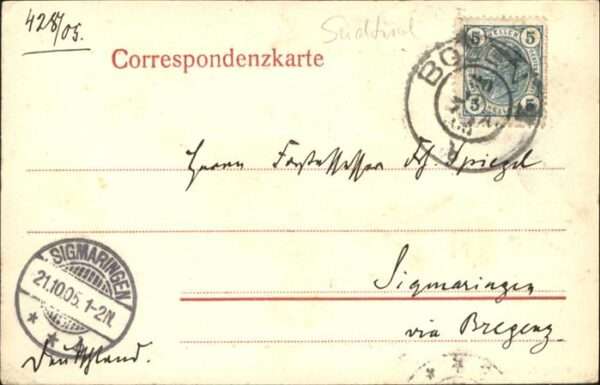 428/05.
Südtirol
Correspondenzkarte
5 5
5 5
BOZEN
Herrn Forstassessor Frh. Spiegel
SIGMARINGEN
21.10.05. 1-2N.
Sigmaringen
via Bregenz
Deutschland.